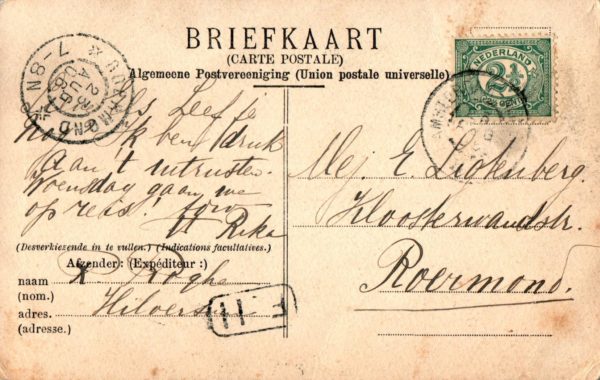 BRIEFKAART
(CARTE POSTALE)
Algemeene Postvereeniging (Union postale universelle)
NEDERLAND
2½
CENT
ROERMOND
7-8N
AUG
AMSTERDAM
Liefje
Ik ben druk
aan 't uitrusten.
Woensdag gaan we
op reis!
Rika
(Desverkiezende in te vullen.) (Indications facultatives.)
Afzender: (Expéditeur:)
naam
(nom.)
adres. Hilversum
(adresse.)
F III
Mej. E. Ligtenberg.
Kloosterwandstr.
Roermond.